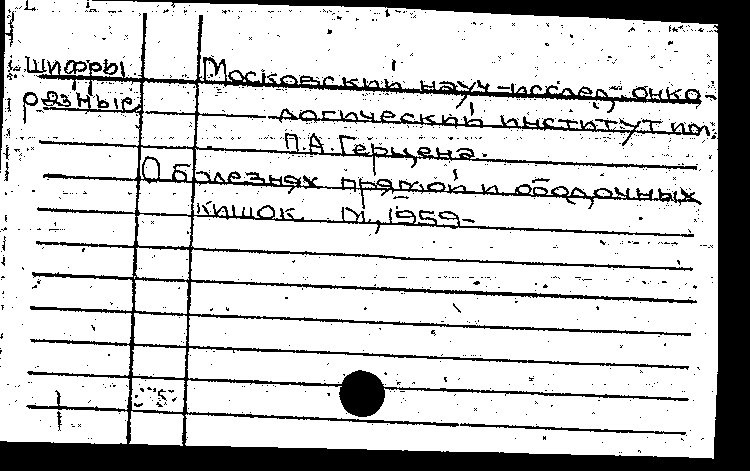 шифры
разные
Московский науч-исслед. онко-
логический институт им.
П.А. Герцена.
О болезнях прямой и ободочных
кишок. М., 1959-